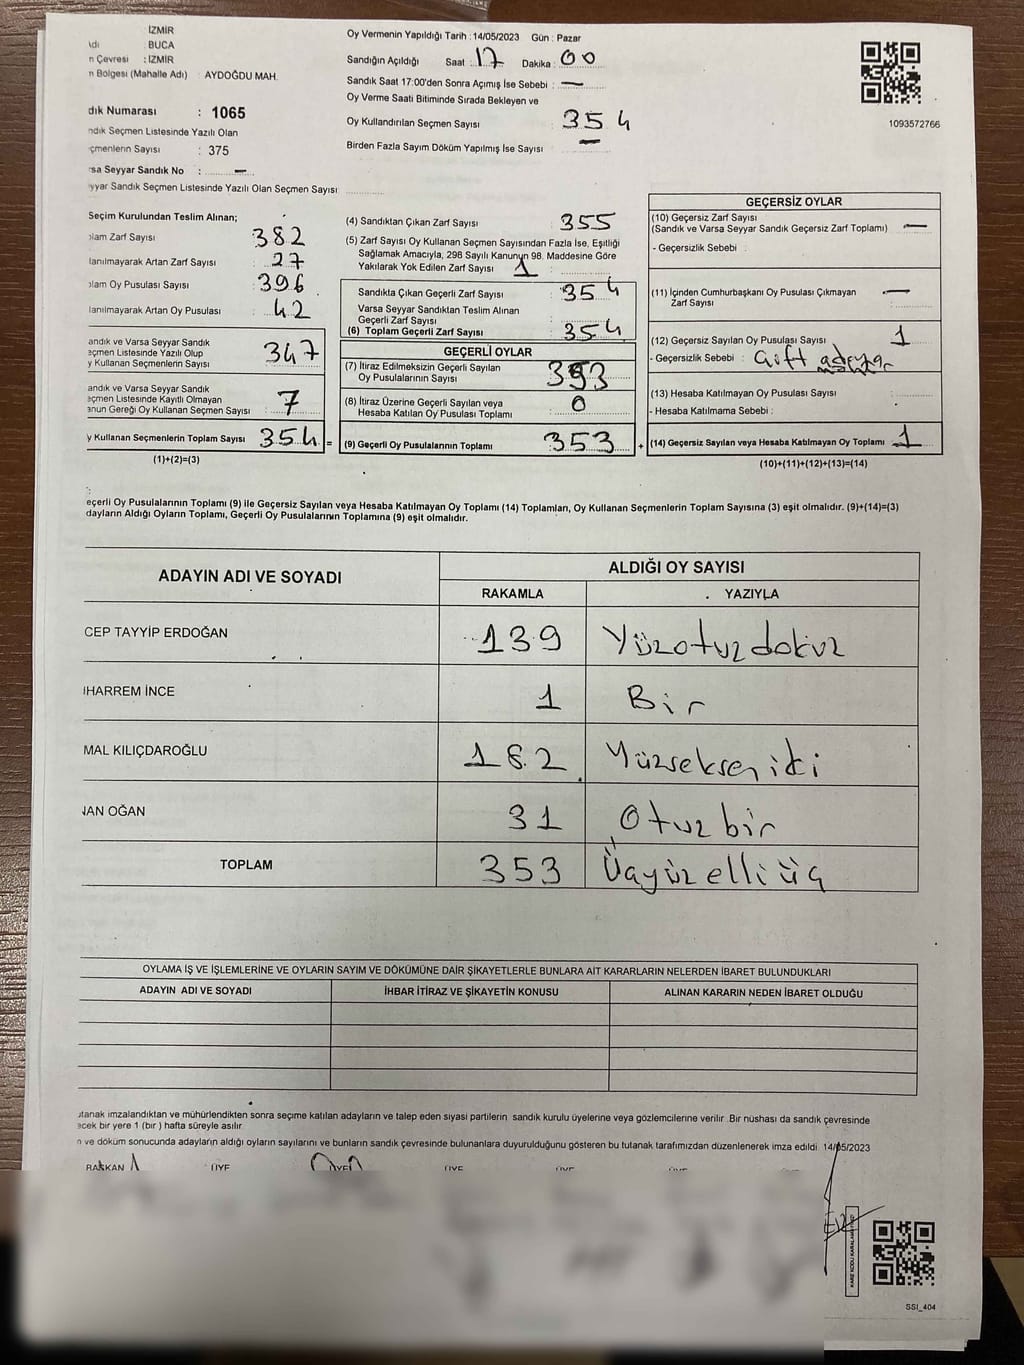 İZMİR
BUCA
n Çevresi : İZMİR
n Bölgesi (Mahalle Adı) : AYDOĞDU MAH.
dık Numarası : 1065
ndık Seçmen Listesinde Yazılı Olan
çmenlerin Sayısı : 375
rsa Seyyar Sandık No : —
yyar Sandık Seçmen Listesinde Yazılı Olan Seçmen Sayısı
Oy Vermenin Yapıldığı Tarih : 14/05/2023 Gün : Pazar
Sandığın Açıldığı Saat : 17 Dakika : 00
Sandık Saat 17:00'den Sonra Açımış İse Sebebi : —
Oy Verme Saati Bitiminde Sırada Bekleyen ve
Oy Kullandırılan Seçmen Sayısı 354
Birden Fazla Sayım Döküm Yapılmış İse Sayısı —
1093572766
Seçim Kurulundan Teslim Alınan;
lam Zarf Sayısı 382
lanılmayarak Artan Zarf Sayısı : 27
lam Oy Pusulası Sayısı : 396
lanılmayarak Artan Oy Pusulası : 42
andık ve Varsa Seyyar Sandık
eçmen Listesinde Yazılı Olup
y Kullanan Seçmenlerin Sayısı 347
andık ve Varsa Seyyar Sandık
eçmen Listesinde Kayıtlı Olmayan
anun Gereği Oy Kullanan Seçmen Sayısı : 7
y Kullanan Seçmenlerin Toplam Sayısı 354 =
(1)+(2)=(3)
(4) Sandıktan Çıkan Zarf Sayısı 355
(5) Zarf Sayısı Oy Kullanan Seçmen Sayısından Fazla İse, Eşitliği
Sağlamak Amacıyla, 298 Sayılı Kanunun 98. Maddesine Göre
Yakılarak Yok Edilen Zarf Sayısı 1
Sandıkta Çıkan Geçerli Zarf Sayısı : 354
Varsa Seyyar Sandıktan Teslim Alınan
Geçerli Zarf Sayısı :
(6) Toplam Geçerli Zarf Sayısı 354
GEÇERLİ OYLAR
(7) İtiraz Edilmeksizin Geçerli Sayılan
Oy Pusulalarının Sayısı 353
(8) İtiraz Üzerine Geçerli Sayılan veya
Hesaba Katılan Oy Pusulası Toplamı : 0
(9) Geçerli Oy Pusulalarının Toplamı 353 +
GEÇERSİZ OYLAR
(10) Geçersiz Zarf Sayısı
(Sandık ve Varsa Seyyar Sandık Geçersiz Zarf Toplamı) —
- Geçersizlik Sebebi :
(11) İçinden Cumhurbaşkanı Oy Pusulası Çıkmayan
Zarf Sayısı —
(12) Geçersiz Sayılan Oy Pusulası Sayısı 1
- Geçersizlik Sebebi : Çift
(13) Hesaba Katılmayan Oy Pusulası Sayısı
- Hesaba Katılmama Sebebi :
(14) Geçersiz Sayılan veya Hesaba Katılmayan Oy Toplamı 1
(10)+(11)+(12)+(13)=(14)
eçerli Oy Pusulalarının Toplamı (9) ile Geçersiz Sayılan veya Hesaba Katılmayan Oy Toplamı (14) Toplamları, Oy Kullanan Seçmenlerin Toplam Sayısına (3) eşit olmalıdır. (9)+(14)=(3)
dayların Aldığı Oyların Toplamı, Geçerli Oy Pusulalarının Toplamına (9) eşit olmalıdır.
ADAYIN ADI VE SOYADI
ALDIĞI OY SAYISI
RAKAMLA YAZIYLA
CEP TAYYİP ERDOĞAN 139 Yüzotuzdokuz
HARREM İNCE 1 Bir
MAL KILIÇDAROĞLU 182 Yüzseksen iki
NAN OĞAN 31 Otuz bir
TOPLAM 353 Üçyüz elli üç
OYLAMA İŞ VE İŞLEMLERİNE VE OYLARIN SAYIM VE DÖKÜMÜNE DAİR ŞİKAYETLERLE BUNLARA AİT KARARLARIN NELERDEN İBARET BULUNDUKLARI
ADAYIN ADI VE SOYADI İHBAR İTİRAZ VE ŞİKAYETİN KONUSU ALINAN KARARIN NEDEN İBARET OLDUĞU
utanak imzalandıktan ve mühürlendikten sonra seçime katılan adayların ve talep eden siyasi partilerin sandık kurulu üyelerine veya gözlemcilerine verilir. Bir nüshası da sandık çevresinde
ecek bir yere 1 (bir) hafta süreyle asılır
n ve döküm sonucunda adayların aldığı oyların sayılarını ve bunların sandık çevresinde bulunanlara duyurulduğunu gösteren bu tutanak tarafımızdan düzenlenerek imza edildi 14/05/2023
BAŞKAN ÜYE ÜYE ÜYE ÜYE ÜYE ÜYE
KARE KODU KARALAMAYINIZ
SSI_404